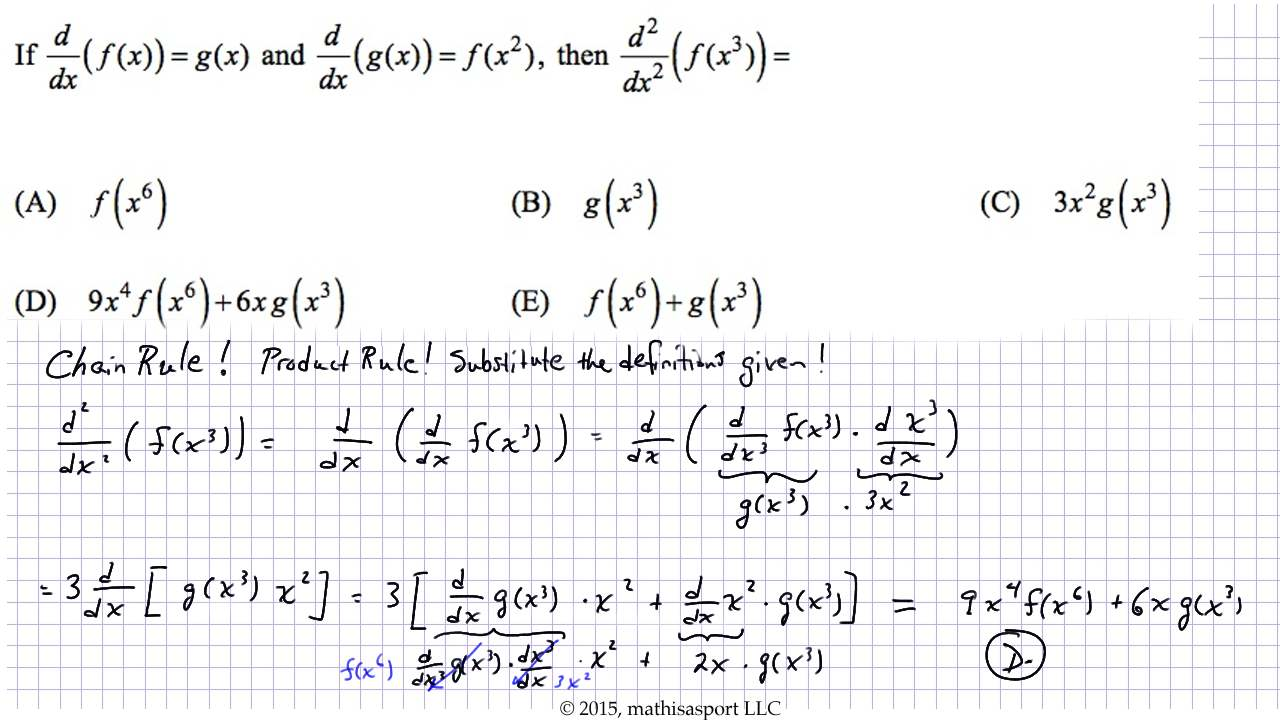 If d/dx (f(x)) = g(x) and d/dx (g(x)) = f(x²), then d²/dx² (f(x³)) =
(A) f(x⁶) (B) g(x³) (C) 3x²g(x³)
(D) 9x⁴f(x⁶)+6xg(x³) (E) f(x⁶)+g(x³)
Chain Rule! Product Rule! Substitute the definitions given!
d²/dx² (f(x³)) = d/dx (d/dx f(x³)) = d/dx (d/dx³ f(x³) · d x³/dx)
g(x³) · 3x²
= 3 d/dx [g(x³) x²] = 3 [d/dx g(x³) · x² + d/dx x² · g(x³)] = 9x⁴f(x⁶) + 6x g(x³)
f(x⁶) d/dx³ g(x³) · dx³/dx 3x² · x² + 2x · g(x³) D.
© 2015, mathisasport LLC